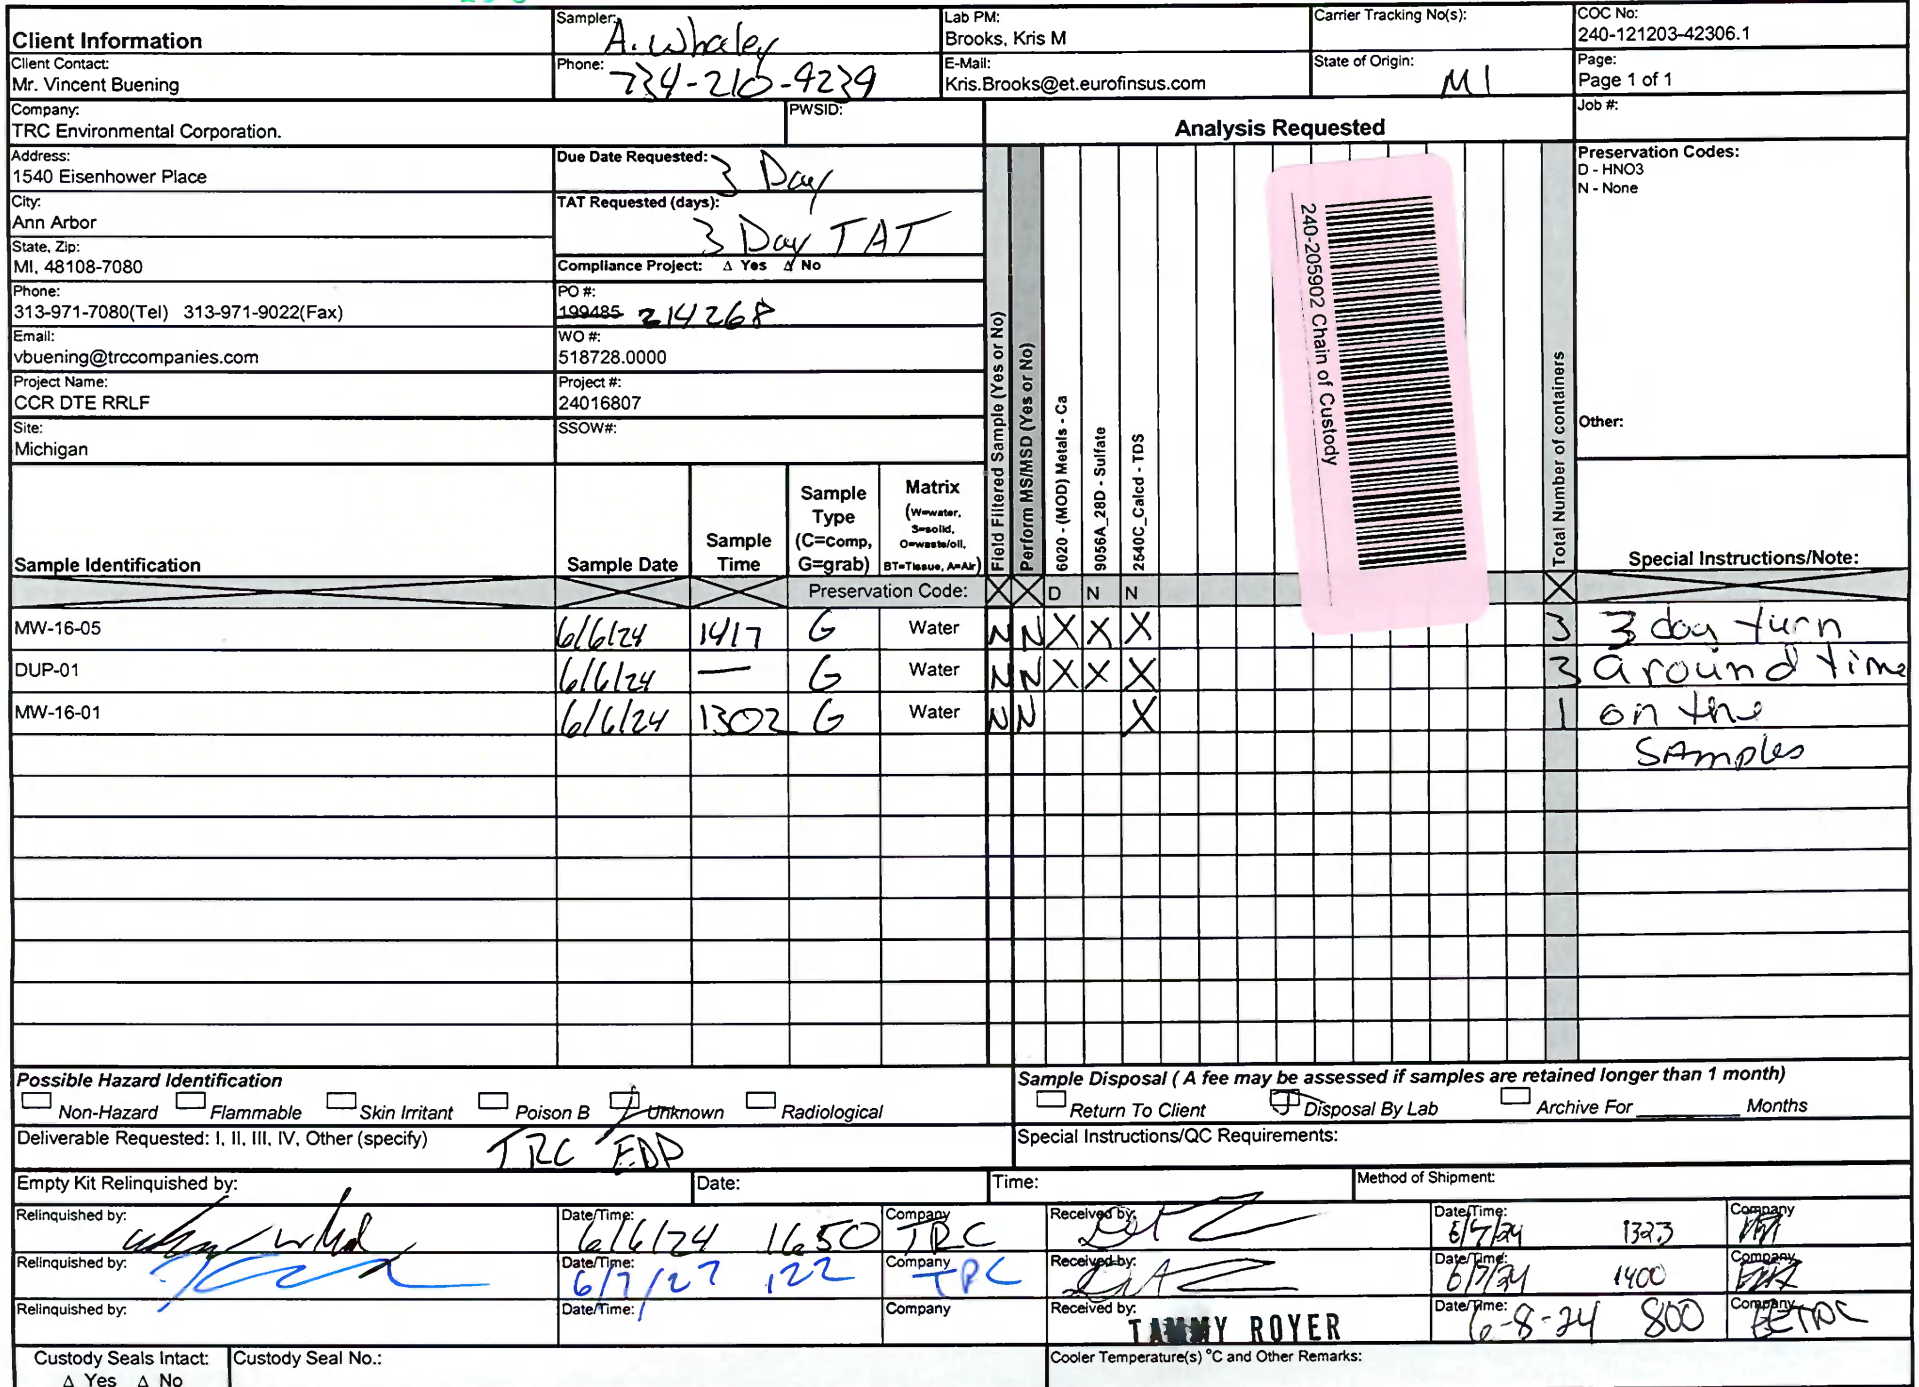 Client Information
Sampler: A. Whaley
Lab PM: Brooks, Kris M
Carrier Tracking No(s):
COC No: 240-121203-42306.1
Client Contact: Mr. Vincent Buening
Phone: 734-210-4239
E-Mail: Kris.Brooks@et.eurofinsus.com
State of Origin: MI
Page: Page 1 of 1
Company: TRC Environmental Corporation.
PWSID:
Analysis Requested
Job #:
Address: 1540 Eisenhower Place
Due Date Requested: 3 Day
Preservation Codes:
D - HNO3
N - None
City: Ann Arbor
TAT Requested (days): 3 Day TAT
State, Zip: MI, 48108-7080
Compliance Project: Δ Yes Δ No
Phone: 313-971-7080(Tel) 313-971-9022(Fax)
PO #: 199485 214268
Email: vbuening@trccompanies.com
WO #: 518728.0000
Project Name: CCR DTE RRLF
Project #: 24016807
Site: Michigan
SSOW#:
Other:
Field Filtered Sample (Yes or No)
Perform MS/MSD (Yes or No)
6020 - (MOD) Metals - Ca
9056A_28D - Sulfate
2540C_Calcd - TDS
240-205902 Chain of Custody
Total Number of containers
Sample Identification
Sample Date
Sample Time
Sample Type (C=comp, G=grab)
Matrix (W=water, S=solid, O=waste/oil, BT=Tissue, A=Air)
Special Instructions/Note:
Preservation Code: X X D N N X
MW-16-05 6/6/24 1417 G Water N N X X X 3 3 day turn
DUP-01 6/6/24 — G Water N N X X X 3 around time
MW-16-01 6/6/24 1302 G Water N N X 1 on the
SAmples
Possible Hazard Identification
Non-Hazard Flammable Skin Irritant Poison B Unknown Radiological
Sample Disposal ( A fee may be assessed if samples are retained longer than 1 month)
Return To Client Disposal By Lab Archive For Months
Deliverable Requested: I, II, III, IV, Other (specify) TRC EDD
Special Instructions/QC Requirements:
Empty Kit Relinquished by:
Date:
Time:
Method of Shipment:
Relinquished by:
Date/Time: 6/6/24 1650
Company TRC
Received by:
Date/Time: 6/7/24 1323
Company
Relinquished by:
Date/Time: 6/7/27 122
Company TRC
Received by:
Date/Time: 6/7/24 1400
Company
Relinquished by:
Date/Time:
Company
Received by: TAMMY ROYER
Date/Time: 6-8-24 800
Company
Custody Seals Intact:
Δ Yes Δ No
Custody Seal No.:
Cooler Temperature(s) °C and Other Remarks: